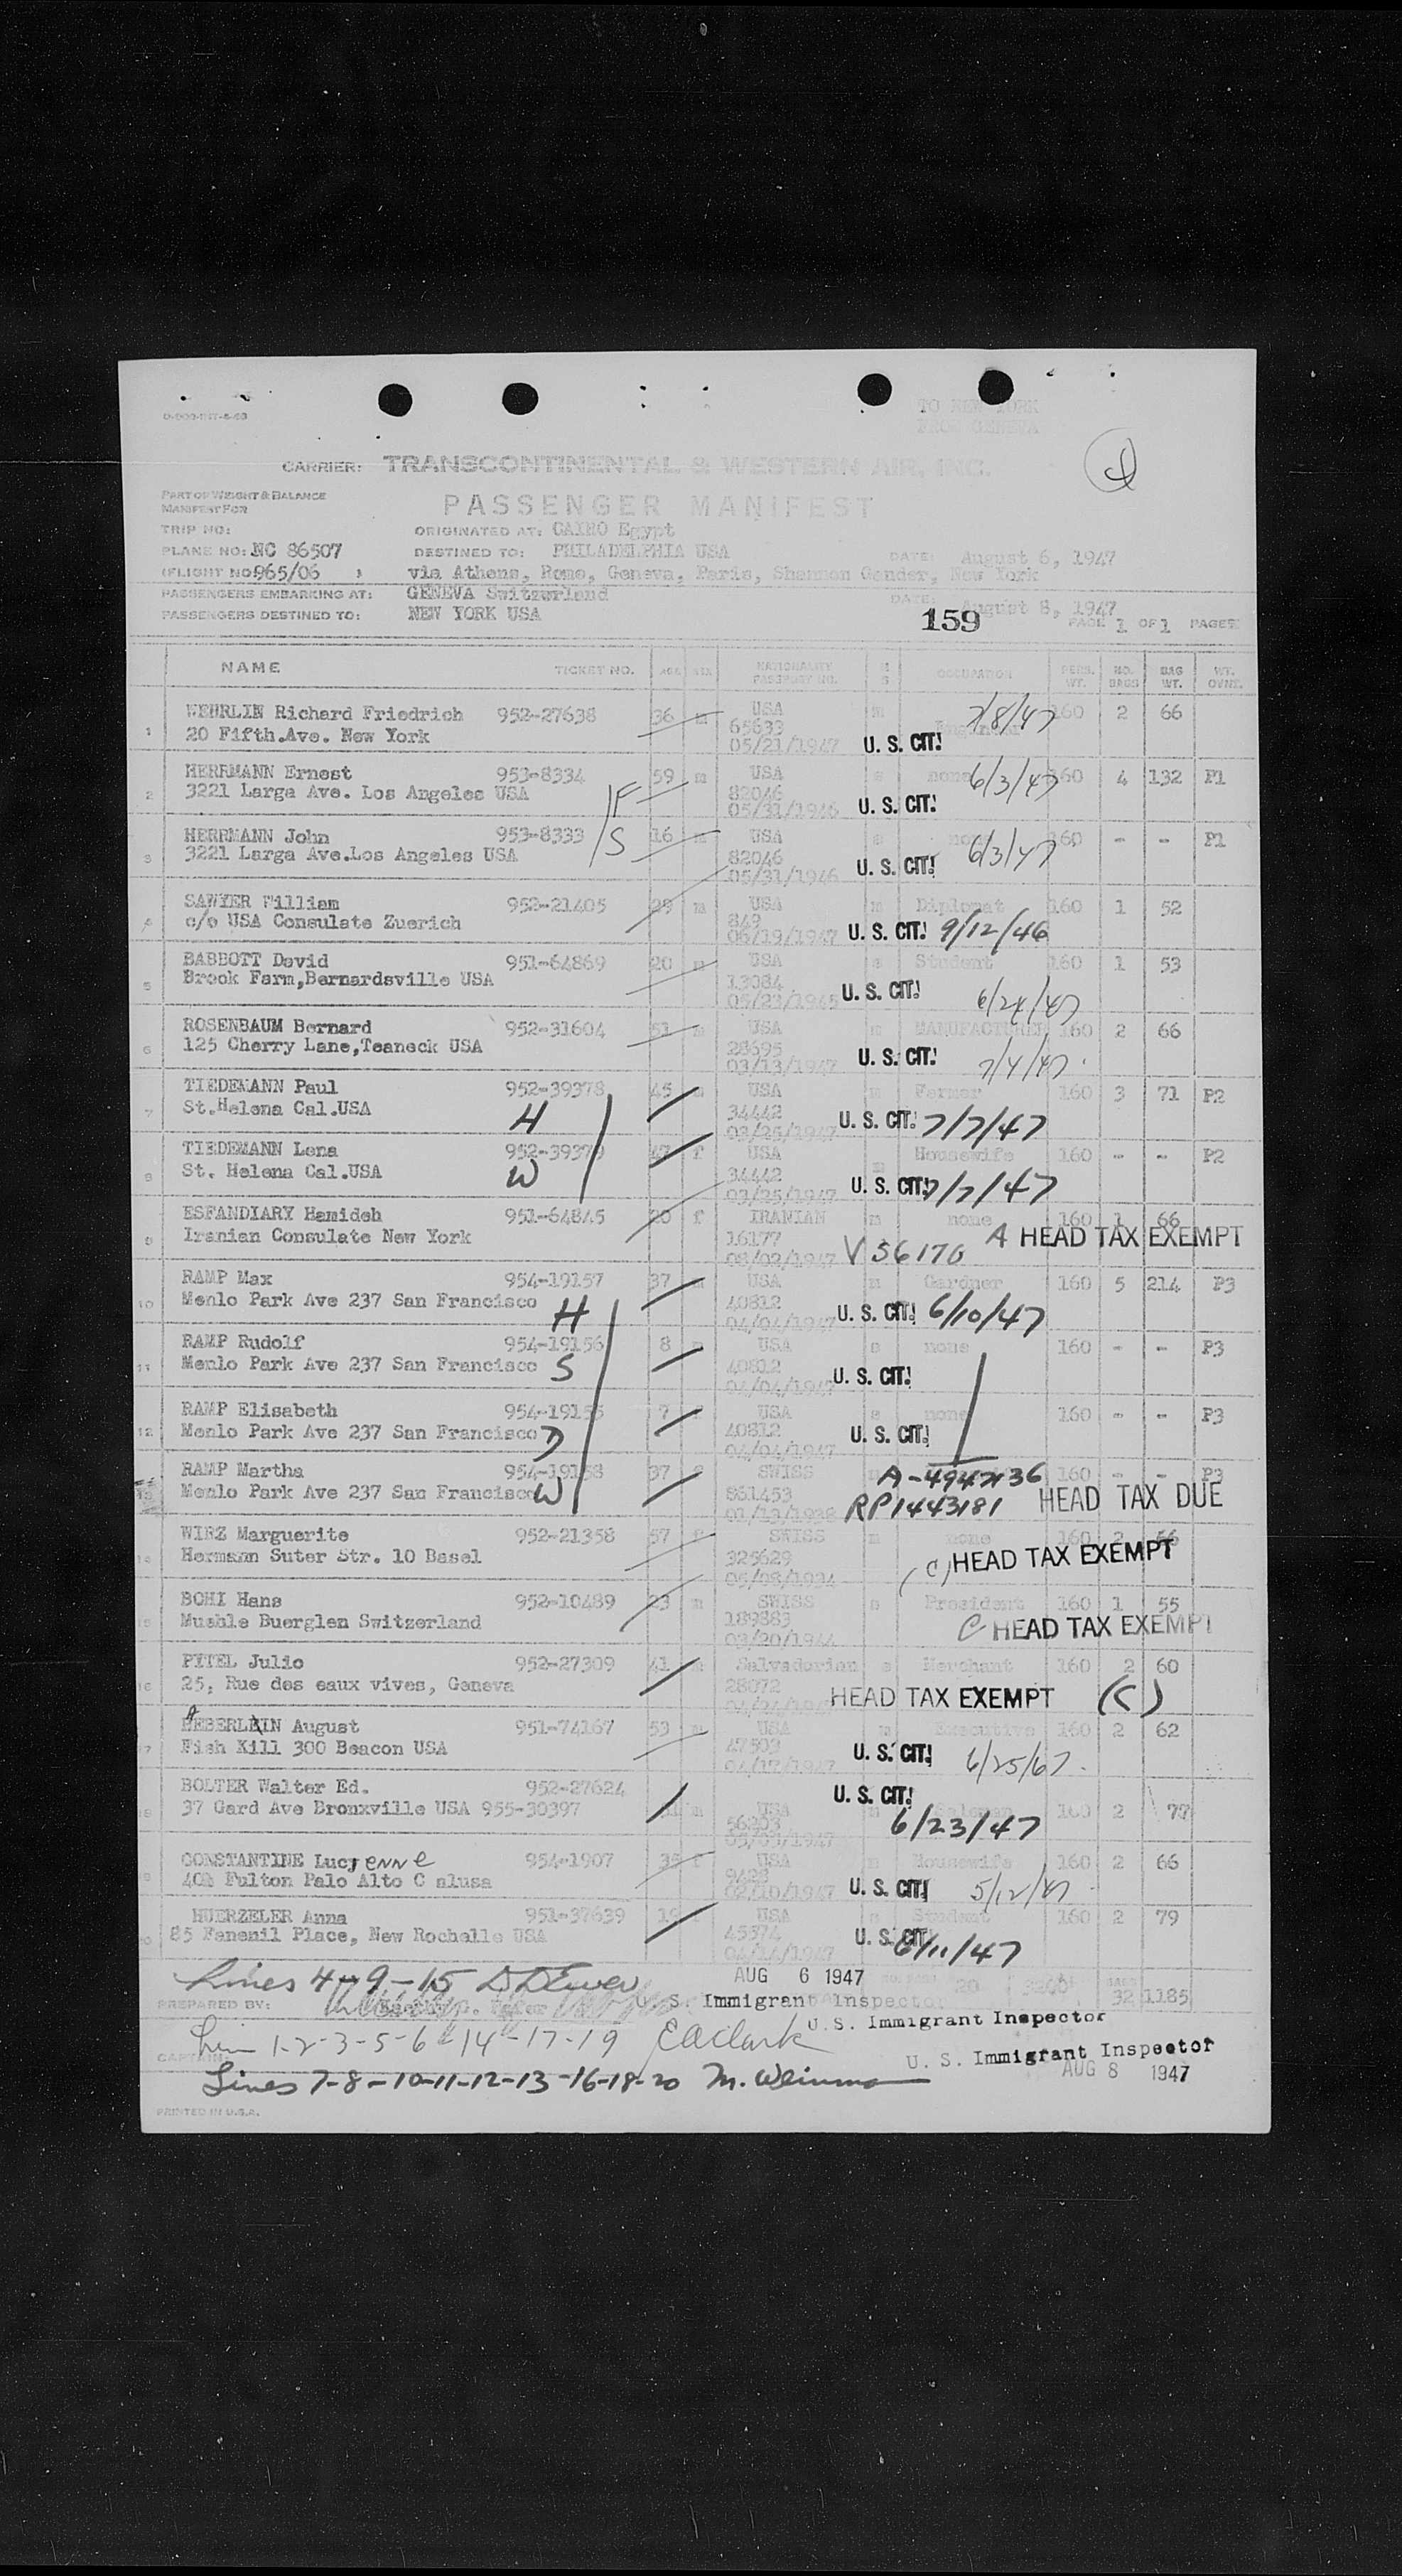 O-909-INT-8-63
TO NEW YORK
FROM GENEVA
CARRIER: TRANSCONTINENTAL & WESTERN AIR, INC.
PART OF WEIGHT & BALANCE
MANIFEST FOR
PASSENGER MANIFEST
TRIP NO: ORIGINATED AT: CAIRO Egypt
PLANE NO: NC 86507 DESTINED TO: PHILADELPHIA USA DATE: August 6, 1947
(FLIGHT NO 965/06 ) via Athens, Rome, Geneva, Paris, Shannon Gander, New York
PASSENGERS EMBARKING AT: GENEVA Switzerland
PASSENGERS DESTINED TO: NEW YORK USA DATE: August 8, 1947
159 PAGE 1 OF 1 PAGES
NAME TICKET NO. AGE SEX NATIONALITY PASSPORT NO. OCCUPATION PERS. WT. NO. BAGS BAG WT. WT. OVNT.
1 WEHRLIN Richard Friedrich 952-27638 36 m USA m 7/8/47 160 2 66
20 Fifth.Ave. New York 65633
05/21/1947 U. S. CIT!
2 HERRMANN Ernest 953-8334 59 m USA s none 6/3/47 160 4 132 P1
3221 Larga Ave. Los Angeles USA F 82046
05/31/1946 U. S. CIT!
3 HERRMANN John 953-8333 S 16 m USA s none 6/3/47 160 - - P1
3221 Larga Ave.Los Angeles USA 82046
05/31/1946 U. S. CIT!
4 SAWYER William 952-21405 29 m USA m Diplomat 160 1 52
c/o USA Consulate Zuerich 849
06/19/1947 U. S. CIT! 9/12/46
5 BABBOTT David 951-64869 20 m USA s Student 160 1 53
Brook Farm,Bernardsville USA 13084
05/23/1945 U. S. CIT! 6/24/47
6 ROSENBAUM Bernard 952-31604 51 m USA m MANUFACTURER 160 2 66
125 Cherry Lane,Teaneck USA 28695
03/13/1947 U. S. CIT! 7/4/47
7 TIEDEMANN Paul 952-39378 45 m USA m Farmer 160 3 71 P2
St.Helena Cal.USA H 34442
03/25/1947 U. S. CIT! 7/7/47
8 TIEDEMANN Lena 952-39379 47 f USA m Housewife 160 - - P2
St. Helena Cal.USA W 34442
03/25/1947 U. S. CIT! 7/7/47
9 ESFANDIARY Hamideh 951-64845 20 f IRANIAN m none 160 1 66
Iranian Consulate New York 16177 A HEAD TAX EXEMPT
08/02/1947 V 56170
10 RAMP Max 954-19157 37 m USA m Gardner 160 5 214 P3
Menlo Park Ave 237 San Francisco H 40812
04/04/1947 U. S. CIT! 6/10/47
11 RAMP Rudolf 954-19156 8 m USA s none 160 - - P3
Menlo Park Ave 237 San Francisco S 40812
04/04/1947 U. S. CIT!
12 RAMP Elisabeth 954-19155 7 f USA s none 160 - - P3
Menlo Park Ave 237 San Francisco D 40812
04/04/1947 U. S. CIT!
13 RAMP Martha 954-19158 37 f SWISS A-4942136 160 - - P3
Menlo Park Ave 237 San Francisco W 861453
01/13/1938 RP1443181 HEAD TAX DUE
14 WIRZ Marguerite 952-21358 57 f SWISS m none 160 2 66
Hermann Suter Str. 10 Basel 325629 (C) HEAD TAX EXEMPT
05/08/1934
15 BOHI Hans 952-10489 23 m SWISS s President 160 1 55
Muehle Buerglen Switzerland 189883 C HEAD TAX EXEMPT
03/20/1944
16 PITEL Julio 952-27309 41 m Salvadorian s Merchant 160 2 60
25, Rue des eaux vives, Geneva 28072
HEAD TAX EXEMPT (C)
17 HEBERLEIN August 951-74167 53 m USA m Executive 160 2 62
Fish Kill 300 Beacon USA 47503
04/17/1947 U. S. CIT! 6/25/67
18 BOLTER Walter Ed. 952-27624 U. S. CIT!
37 Gard Ave Bronxville USA 955-30397 m USA m 160 2 77
56203 6/23/47
19 CONSTANTINE Lucyenne 954-1907 35 f USA m Housewife 160 2 66
Fulton Palo Alto C alusa 9428
02/10/1947 U. S. CIT! 5/12/47
20 HUERZELER Anna 951-37639 19 f USA s Student 160 2 79
85 Fenenil Place, New Rochelle USA 45574
04/14/1947 U. S. CIT! 6/11/47
Lines 4-9-15 AUG 6 1947 20 3200 32 1185
PREPARED BY: U. S. Immigrant Inspector
U. S. Immigrant Inspector
Lines 1-2-3-5-6-14-17-19 E A Clark
CAPTAIN: U. S. Immigrant Inspector
Lines 7-8-10-11-12-13-16-18-20 M. Weinman AUG 8 1947
PRINTED IN U.S.A.